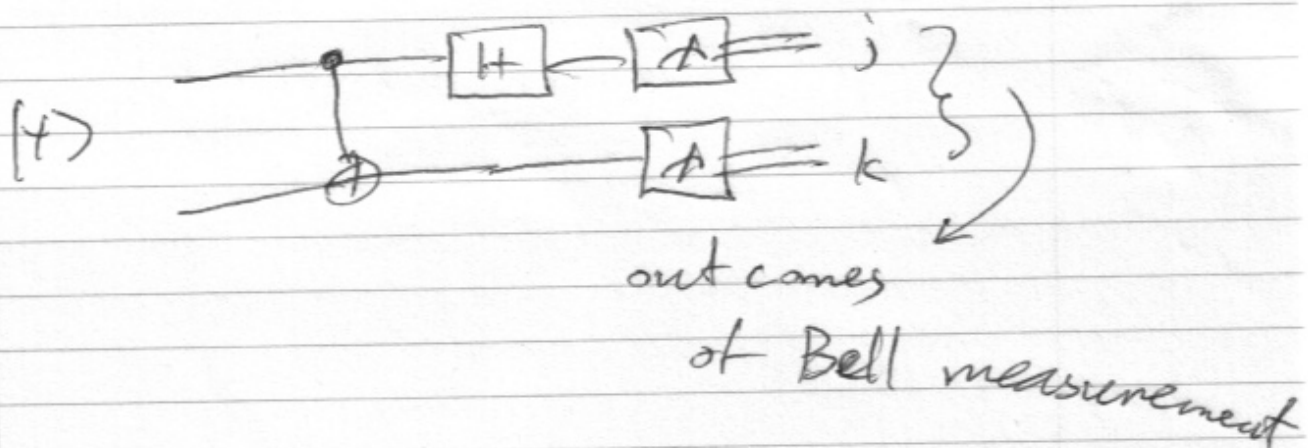 H j
|ψ⟩
k
outcomes
of Bell measurement